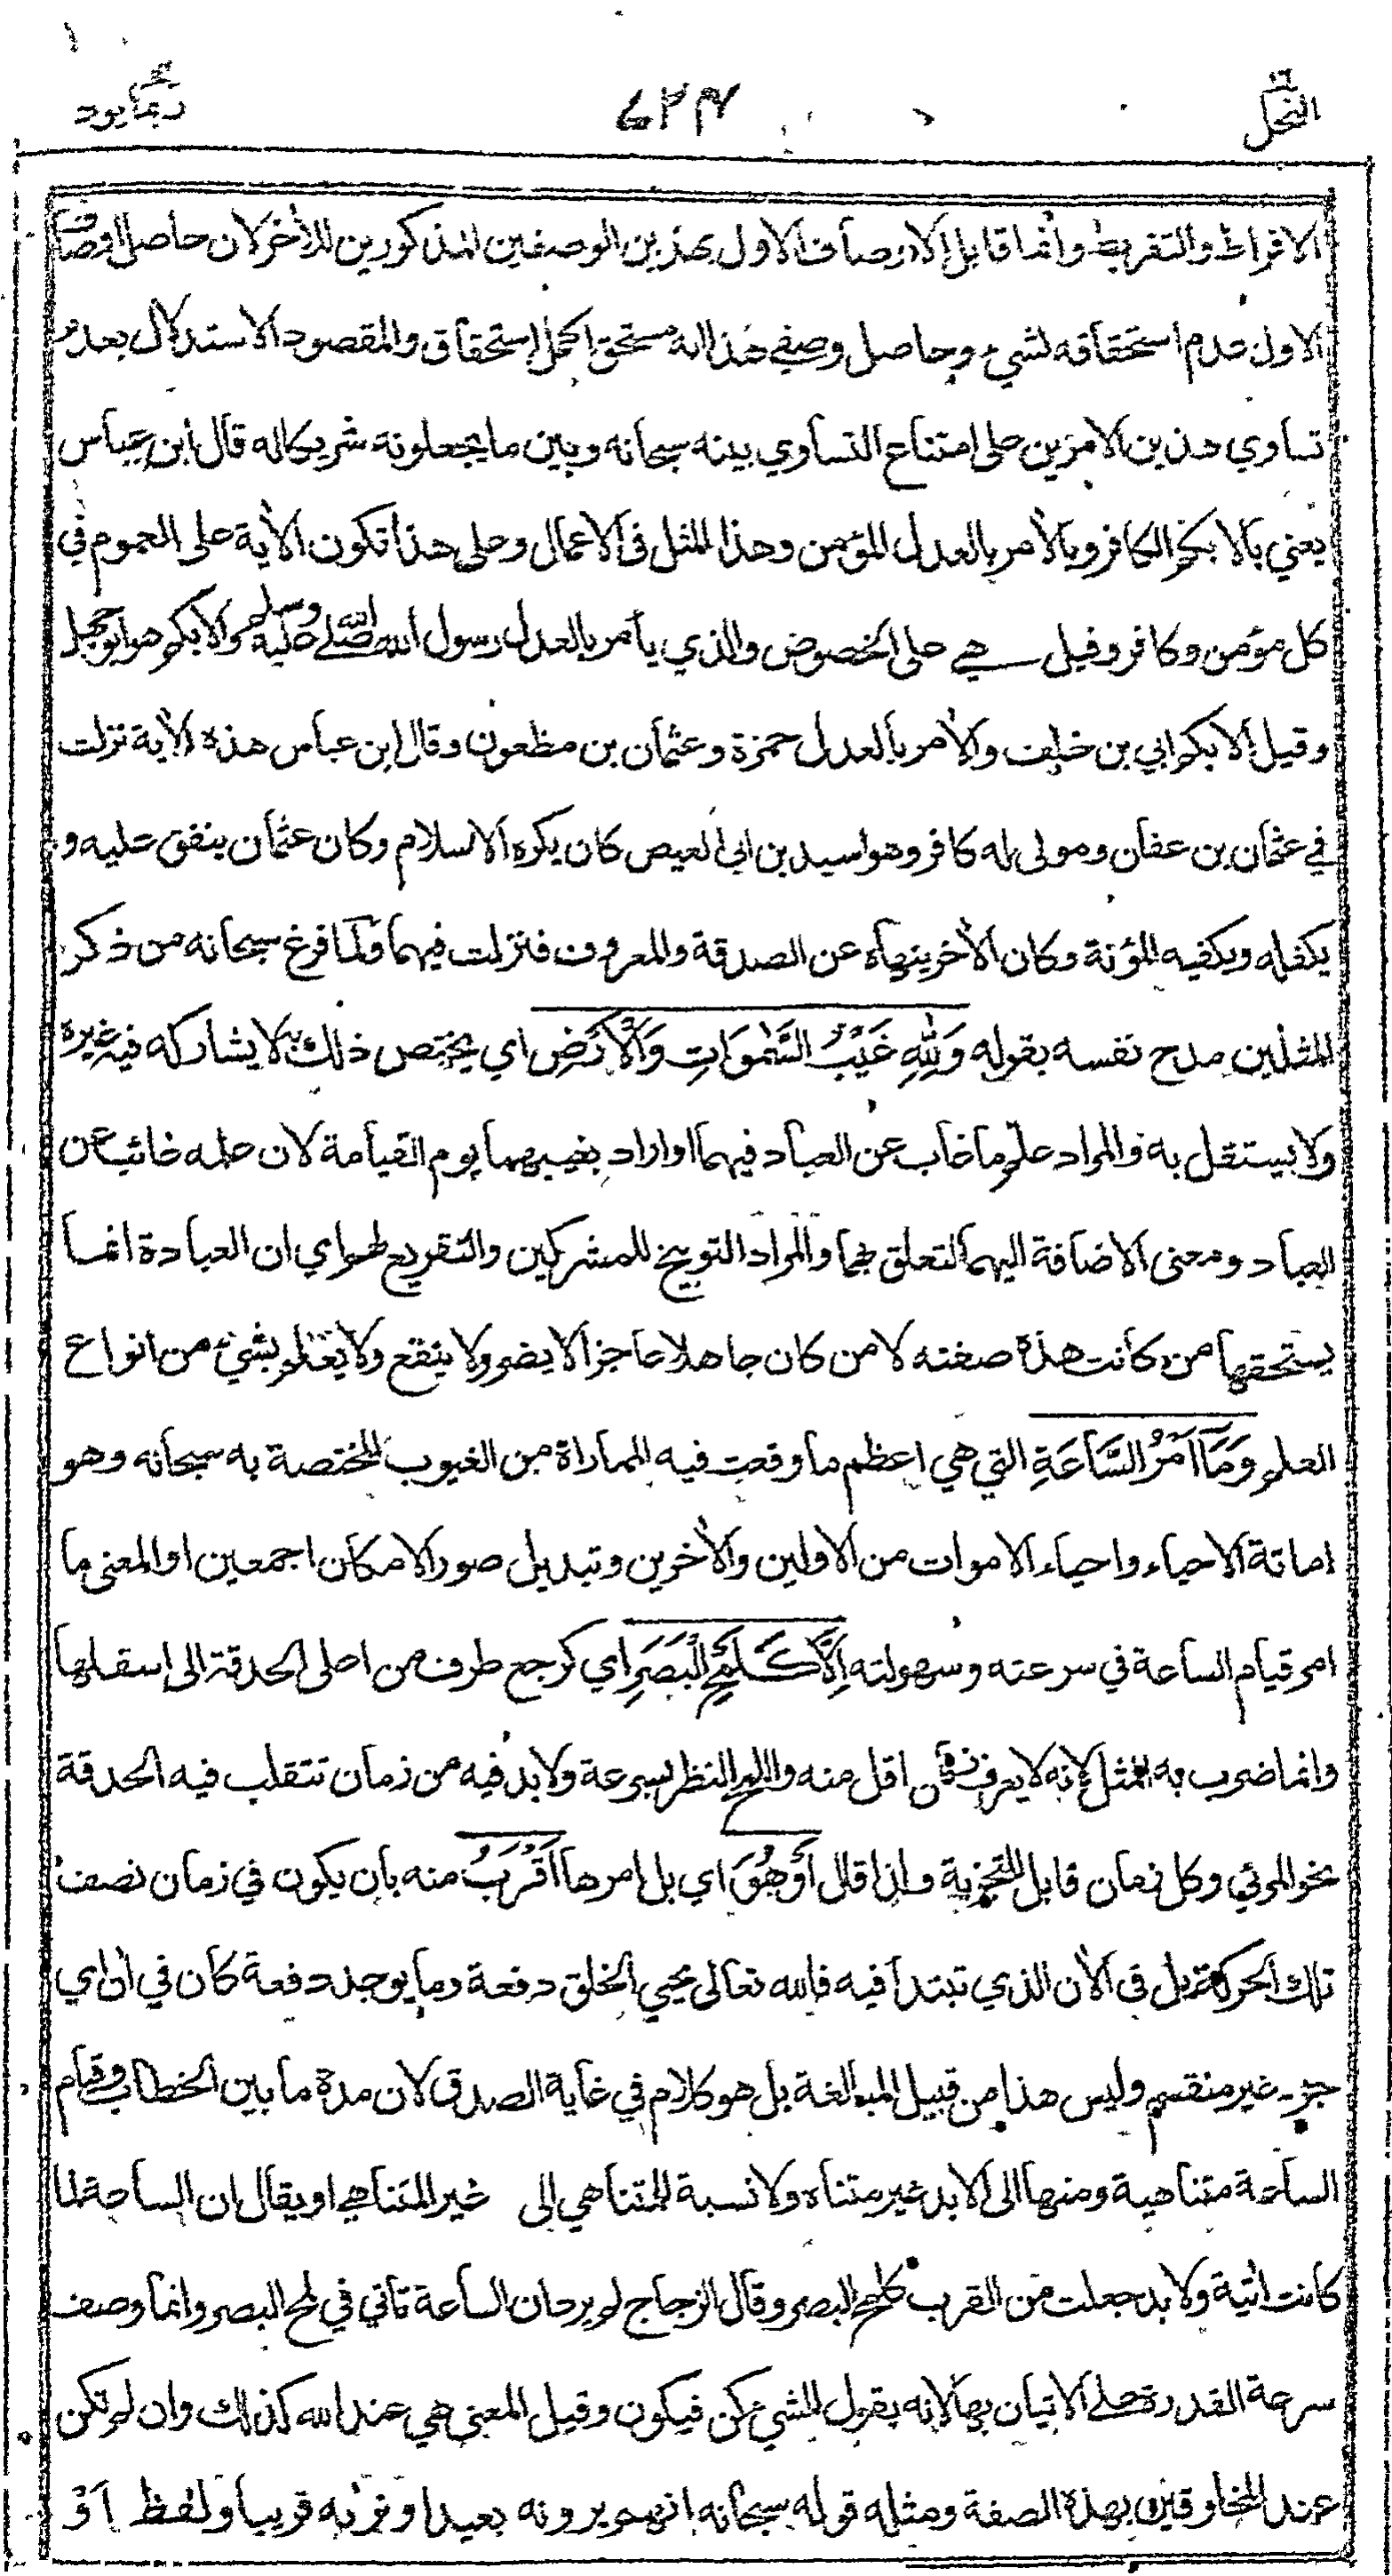 النحل ٧٢٣ ربما يود
الافراط والتفريط وانما قابل الاوصاف الاول بهذين الوصفين المذكورين للأخر لان حاصل اوصاف
الاول عدم استحقاقه لشيء وحاصل وصفي هذا انه مستحق اكمل استحقاق والمقصود الاستدلال بعدم
تساوي هذين الامرين على امتناع التساوي بينه سبحانه وبين ما يجعلونه شريكاله قال ابن عباس
يعني بالابكم الكافر وبالأمر بالعدل المؤمن وهذا المثل في الاعمال وعلى هذا تكون الأية على العموم في
كل مؤمن وكافر وقيل هي على الخصوص والذي يأمر بالعدل رسول الله صلى الله عليه وسلم والابكم هو ابو جهل
وقيل الابكم ابي بن خلف والأمر بالعدل حمزة وعثمان بن مظعون وقال ابن عباس هذه الأية نزلت
في عثمان بن عفان ومولى له كافر وهو اسيد بن ابي العيص كان يكره الاسلام وكان عثمان ينفق عليه و
يكفله ويكفيه المؤنة وكان الأخر ينهاه عن الصدقة والمعروف فنزلت فيهما ولما فرغ سبحانه من ذكر
المثلين مدح نفسه بقوله وَلِلّٰهِ غَيْبُ السَّمٰوَاتِ وَالْأَرْضِ اي يختص ذلك به لا يشاركه فيه غيره
ولا يستقل به والمراد علم ما غاب عن العباد فيهما او اراد بغيبهما يوم القيامة لان علمه غائب عن
العباد ومعنى الاضافة اليهما التعلق بهما والمراد التوبيخ للمشركين والتقريع لهم اي ان العبادة انما
يستحقها من كانت هذه صفته لا من كان جاهلا عاجزا لا يضر ولا ينفع ولا يعلم بشيء من انواع
العلم وَمَا أَمْرُ السَّاعَةِ التي هي اعظم ما وقعت فيه المماراة من الغيوب المختصة به سبحانه وهو
اماتة الاحياء واحياء الاموات من الاولين والأخرين وتبديل صور الامكان اجمعين او المعنى ما
امر قيام الساعة في سرعته وسهولته اِلَّا كَلَمْحِ الْبَصَرِ اي كرجع طرف من اعلى الحدقة الى اسفلها
وانما ضرب به المثل لانه لا يعرف زمان اقل منه واللمح النظر بسرعة ولا بد فيه من زمان تتقلب فيه الحدقة
نحو المرئي وكل زمان قابل للتجزية ولذا قال أَوْ هُوَ اي بل امرها أَقْرَبُ منه بان يكون في زمان نصف
تلك الحركة بل في الأن الذي تبتدأ فيه فالله تعالى يحيي الخلق دفعة وما يوجد دفعة كان في أن اي
جزء غير منقسم وليس هذا من قبيل المبالغة بل هو كلام في غاية الصدق لان مدة ما بين الخطاب وقيام
الساعة متناهية ومنها الى الابد غير متناه ولا نسبة للمتناهي الى غير المتناهي او يقال ان الساعة لما
كانت أتية ولا بد جعلت من القرب كلمح البصر وقال الزجاج لم يرد ان الساعة تأتي في لمح البصر وانما وصف
سرعة القدرة على الاتيان بها لانه يقول للشيء كن فيكون وقيل المعنى هي عند الله كذلك وان لم تكن
عند المخلوقين بهذه الصفة ومثله قوله سبحانه انهم يرونه بعيدا ونريه قريبا ولفظ أَوْ